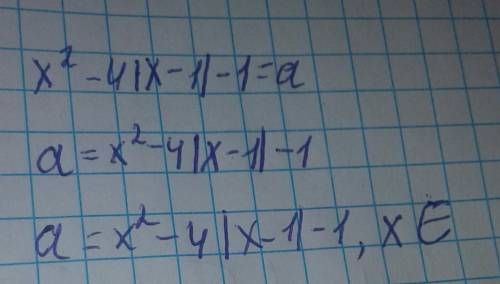 x² - 4|x - 1| - 1 = a
a = x² - 4|x - 1| - 1
a = x² - 4|x - 1| - 1, x ∈